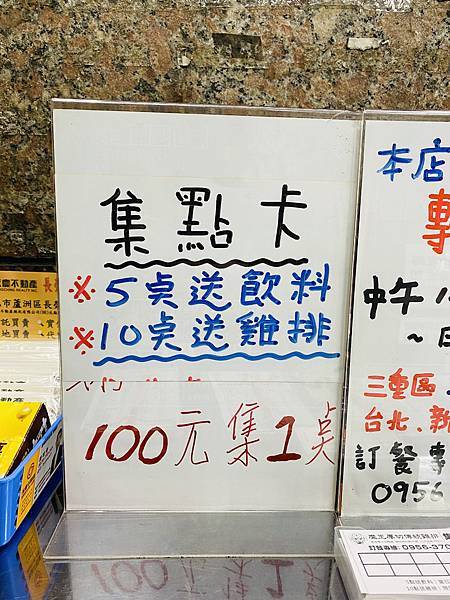 集點卡
※5点送飲料
※10点送雞排
100元集1点
本店
專
中午
~日
三重區
台北.新
訂餐專
0956
慶不動產
市蘆洲區長榮
訂餐專線:0956-370